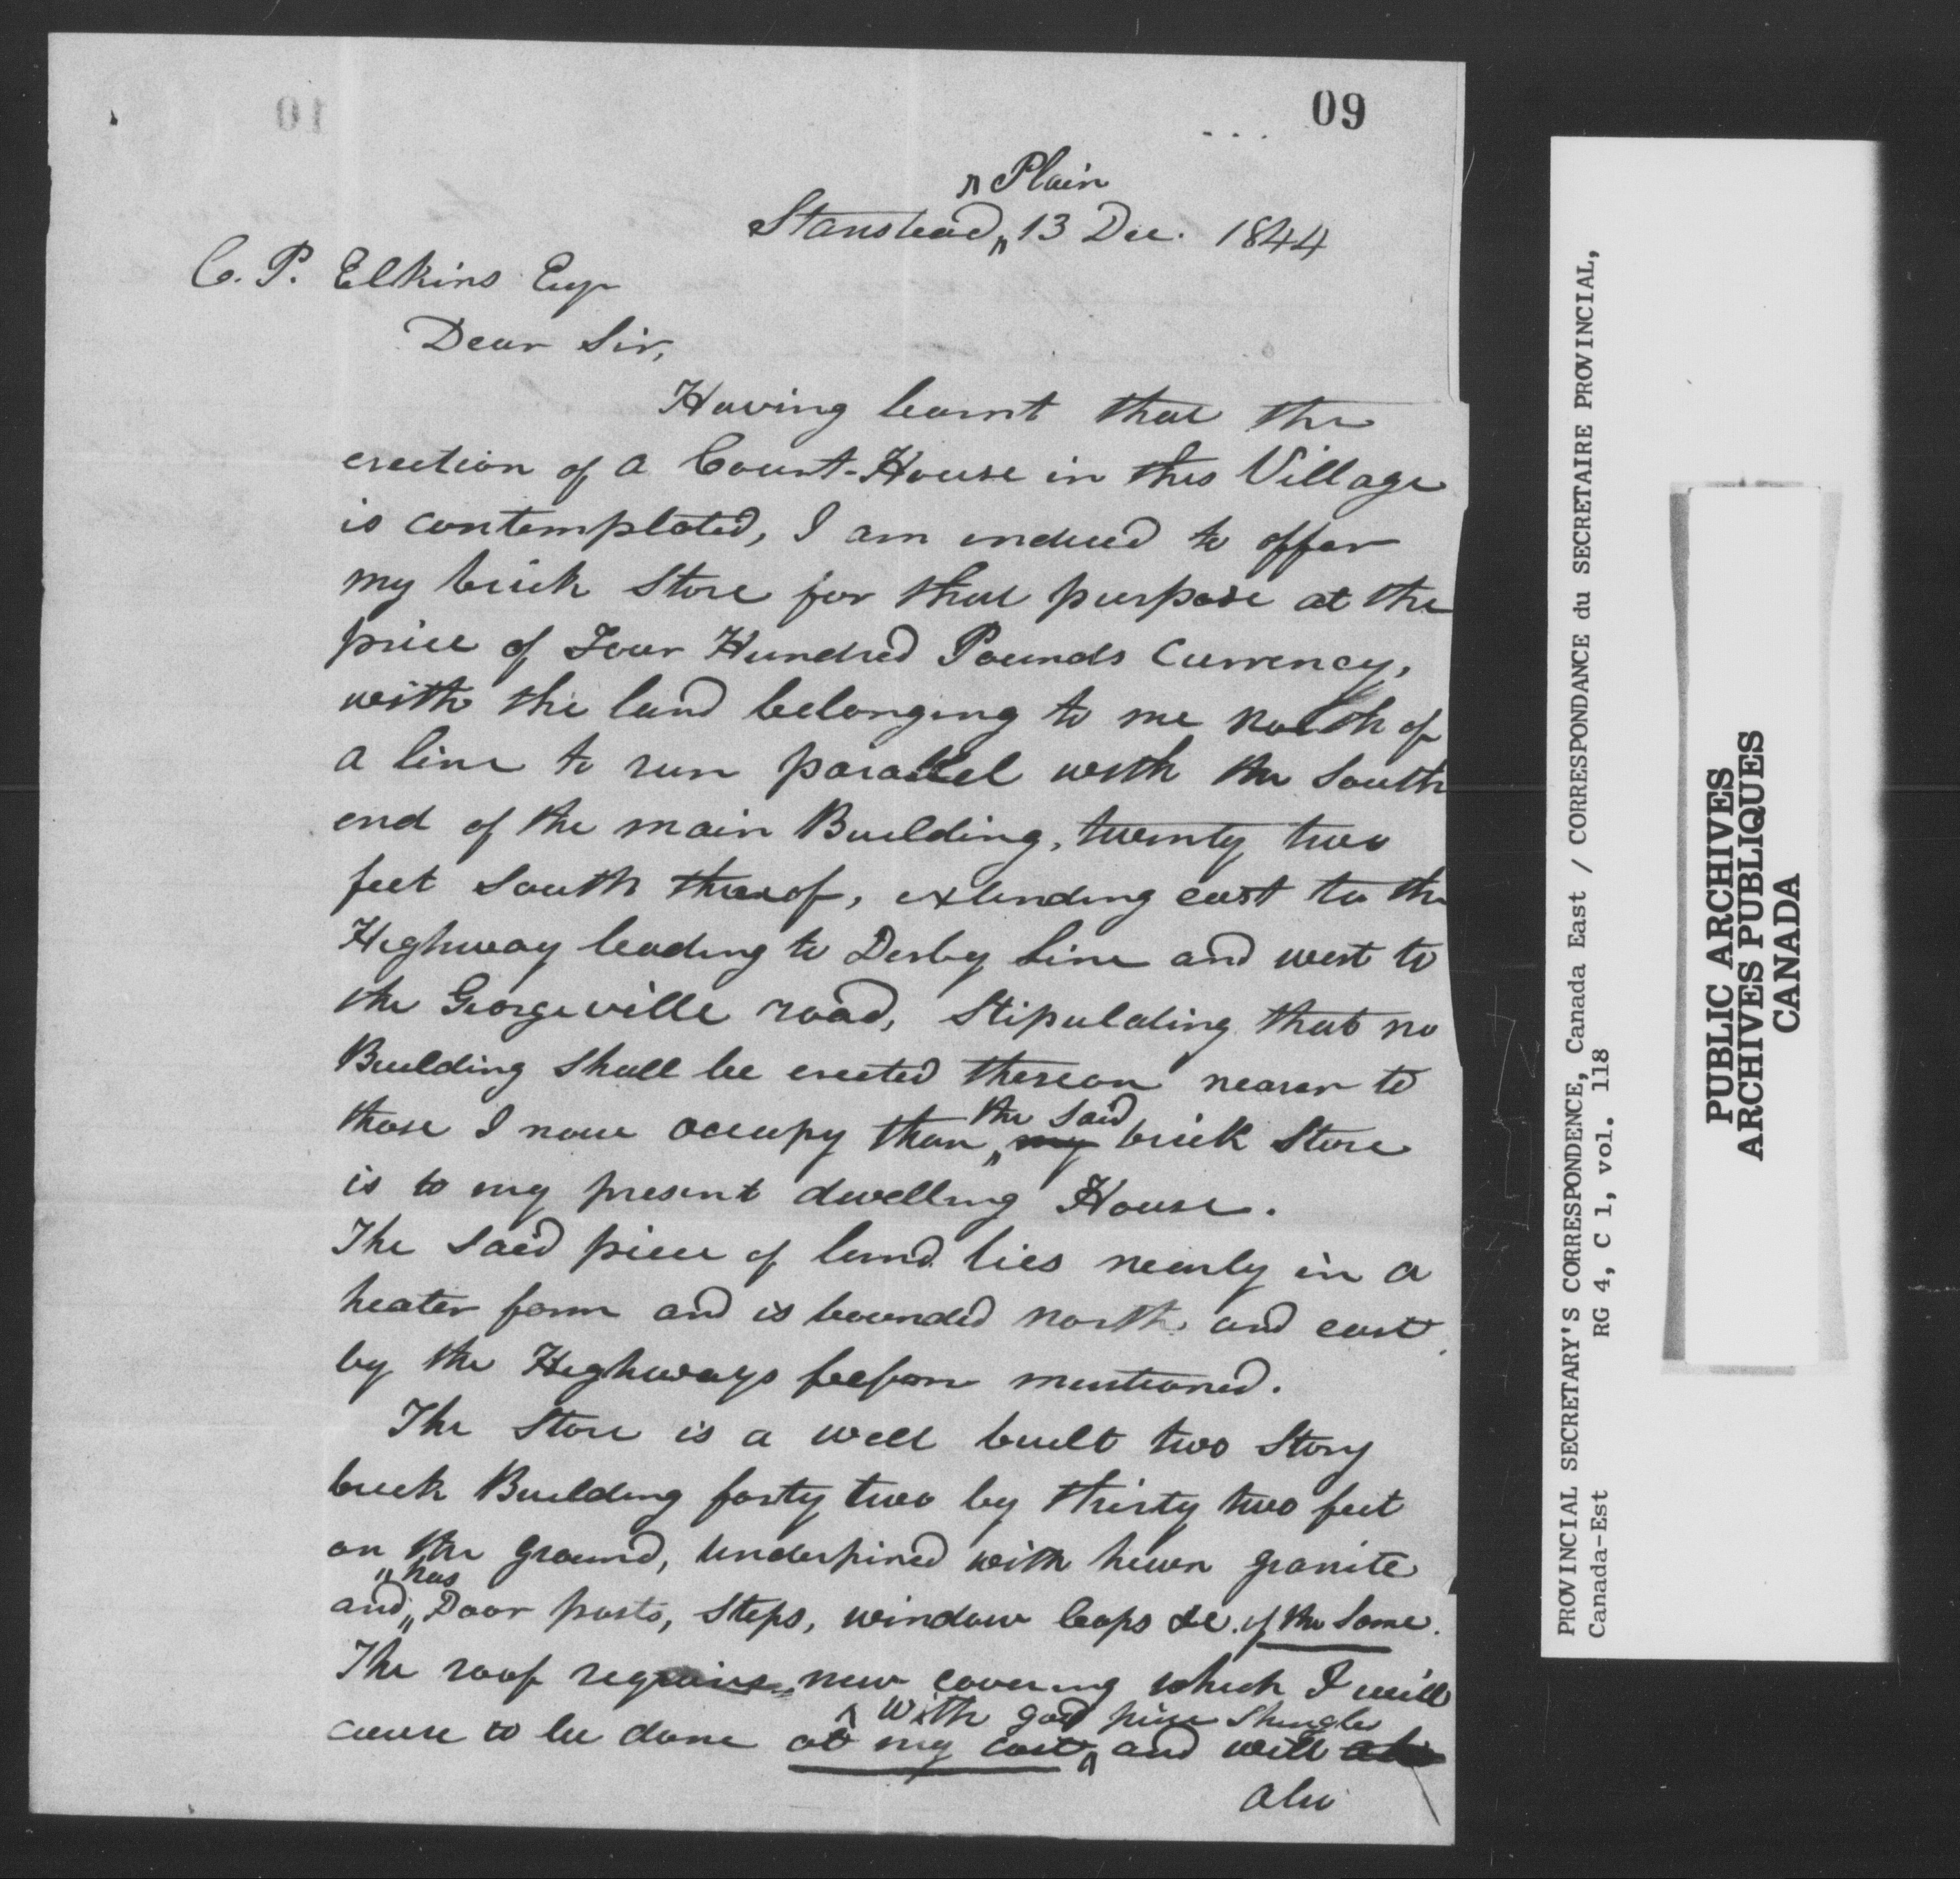 09
Plain
Stanstead, 13 Dec. 1844
C. P. Elkins Esqr
Dear Sir,
Having learnt that the
erection of a Court-House in this Village
is contemplated, I am induced to offer
my brick Store for that purpose at the
price of Four Hundred Pounds Currency,
with the land belonging to me north of
a line to run parallel with the South
end of the main Building, twenty two
feet South thereof, extending east to the
Highway leading to Derby Line and west to
the Georgeville road, Stipulating that no
Building shall be erected thereon nearer to
those I now occupy than the said my brick Store
is to my present dwelling House.
The said piece of land lies nearly in a
heater form and is bounded north and east
by the Highways before mentioned.
The Store is a well built two Story
brick Building forty two by thirty two feet
on the ground, underpined with hewn granite
and has Door posts, Steps, window caps &c. of the same.
The roof requires new covering which I will
cause to be done at my cost, with good pine Shingles and will
also
PROVINCIAL SECRETARY'S CORRESPONDENCE, Canada East / CORRESPONDANCE du SECRETAIRE PROVINCIAL,
Canada-Est RG 4, C 1, vol. 118
PUBLIC ARCHIVES
ARCHIVES PUBLIQUES
CANADA